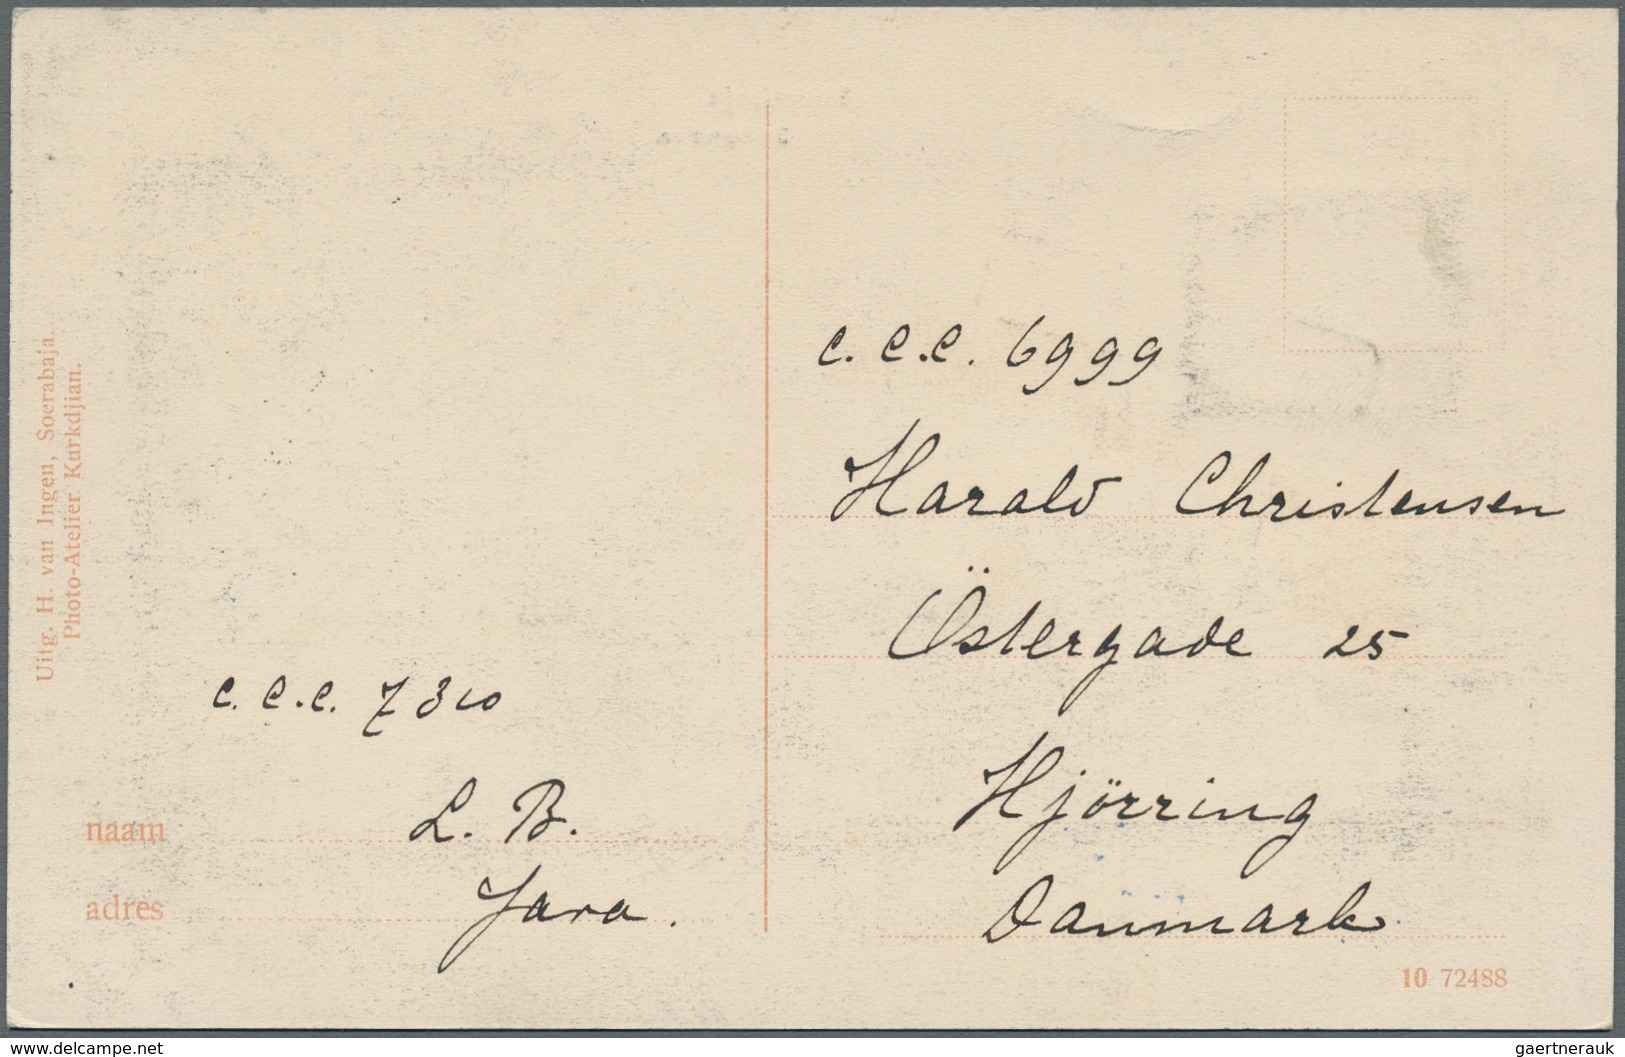 Uitg. H. van Ingen, Soerabaja.
Photo-Atelier Kurkdjian.
c. c. c. 7310
naam L. B.
adres Java.
c. c. c. 6999
Harald Christensen
Östergade 25
Hjörring
Danmark
10 72488
www.delcampe.net
gaertnerauk